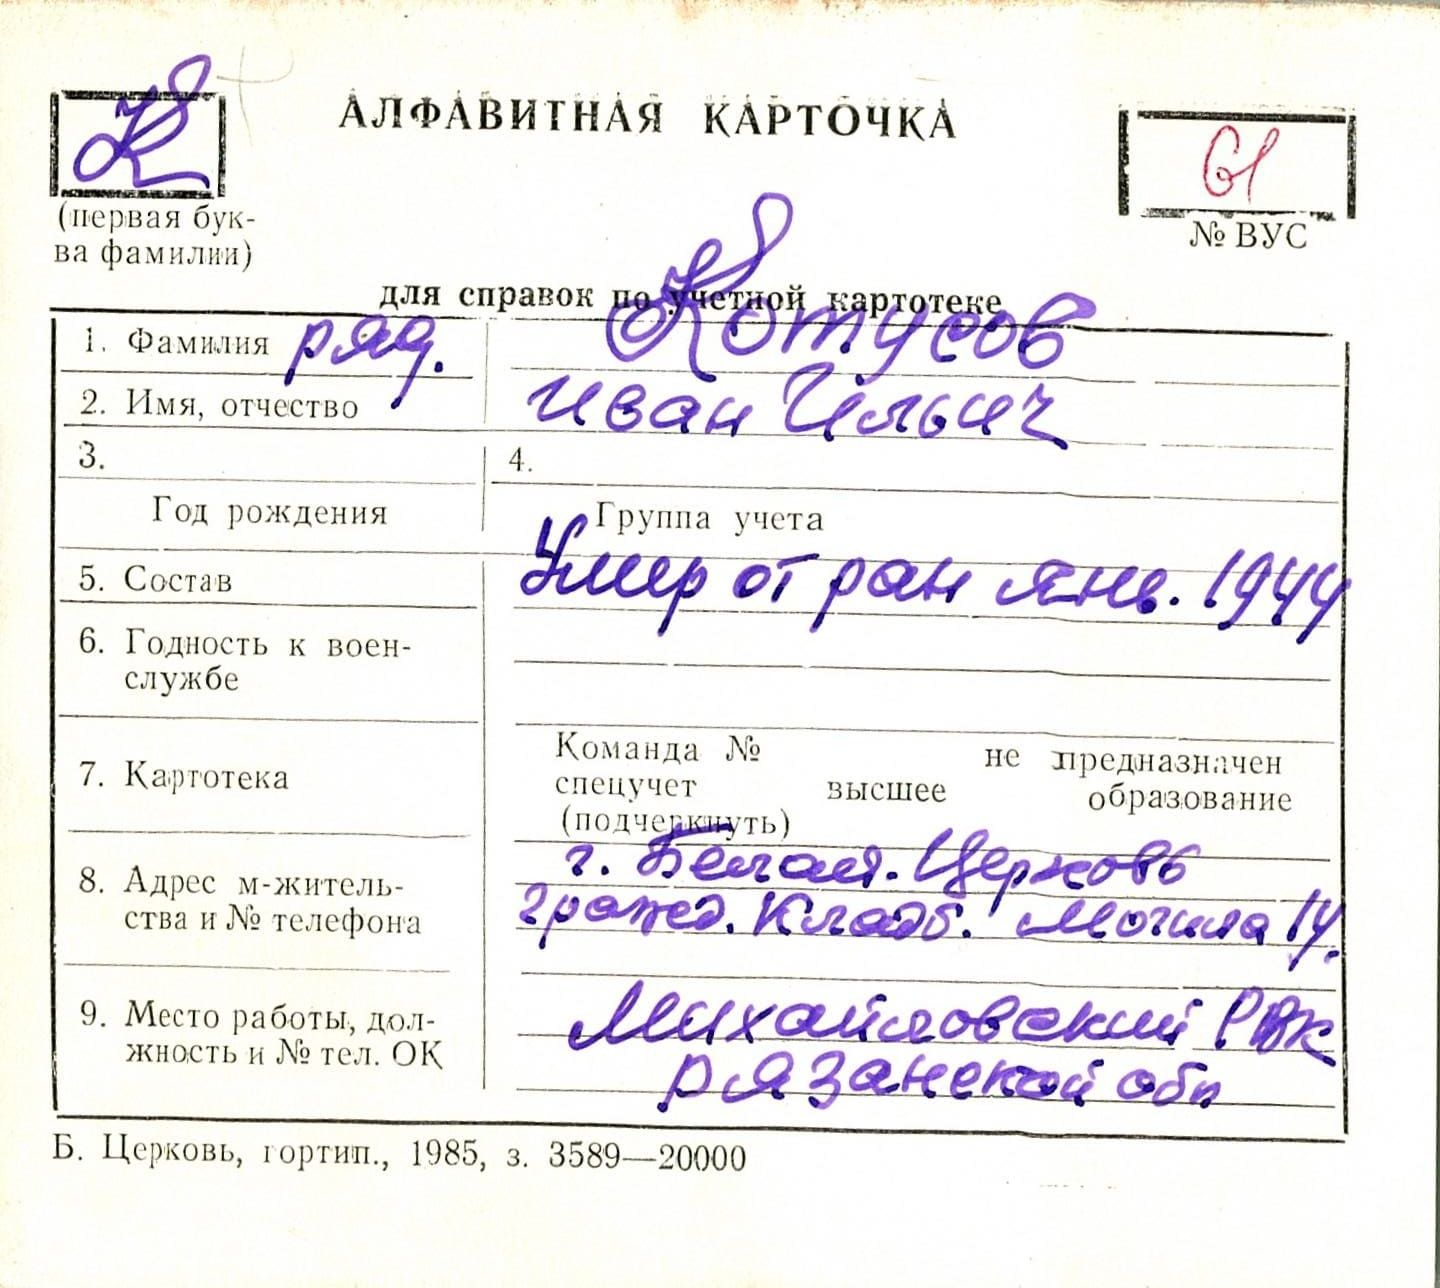 К
АЛФАВИТНАЯ КАРТОЧКА
61
(первая бук-
ва фамилии)
№ ВУС
для справок по учетной картотеке
1. Фамилия ряд. Котусов
2. Имя, отчество Иван Ильич
3. 4.
Год рождения Группа учета
5. Состав Умер от ран янв. 1944
6. Годность к воен-
службе
7. Картотека
Команда № не предназначен
спецучет высшее образование
(подчеркнуть)
8. Адрес м-житель-
ства и № телефона
г. Белая. Церковь
гражд. кладб. Могила 14.
9. Место работы, дол-
жность и № тел. ОК
Михайловский РВК
рязанской обл
Б. Церковь, гортип., 1985, з. 3589—20000